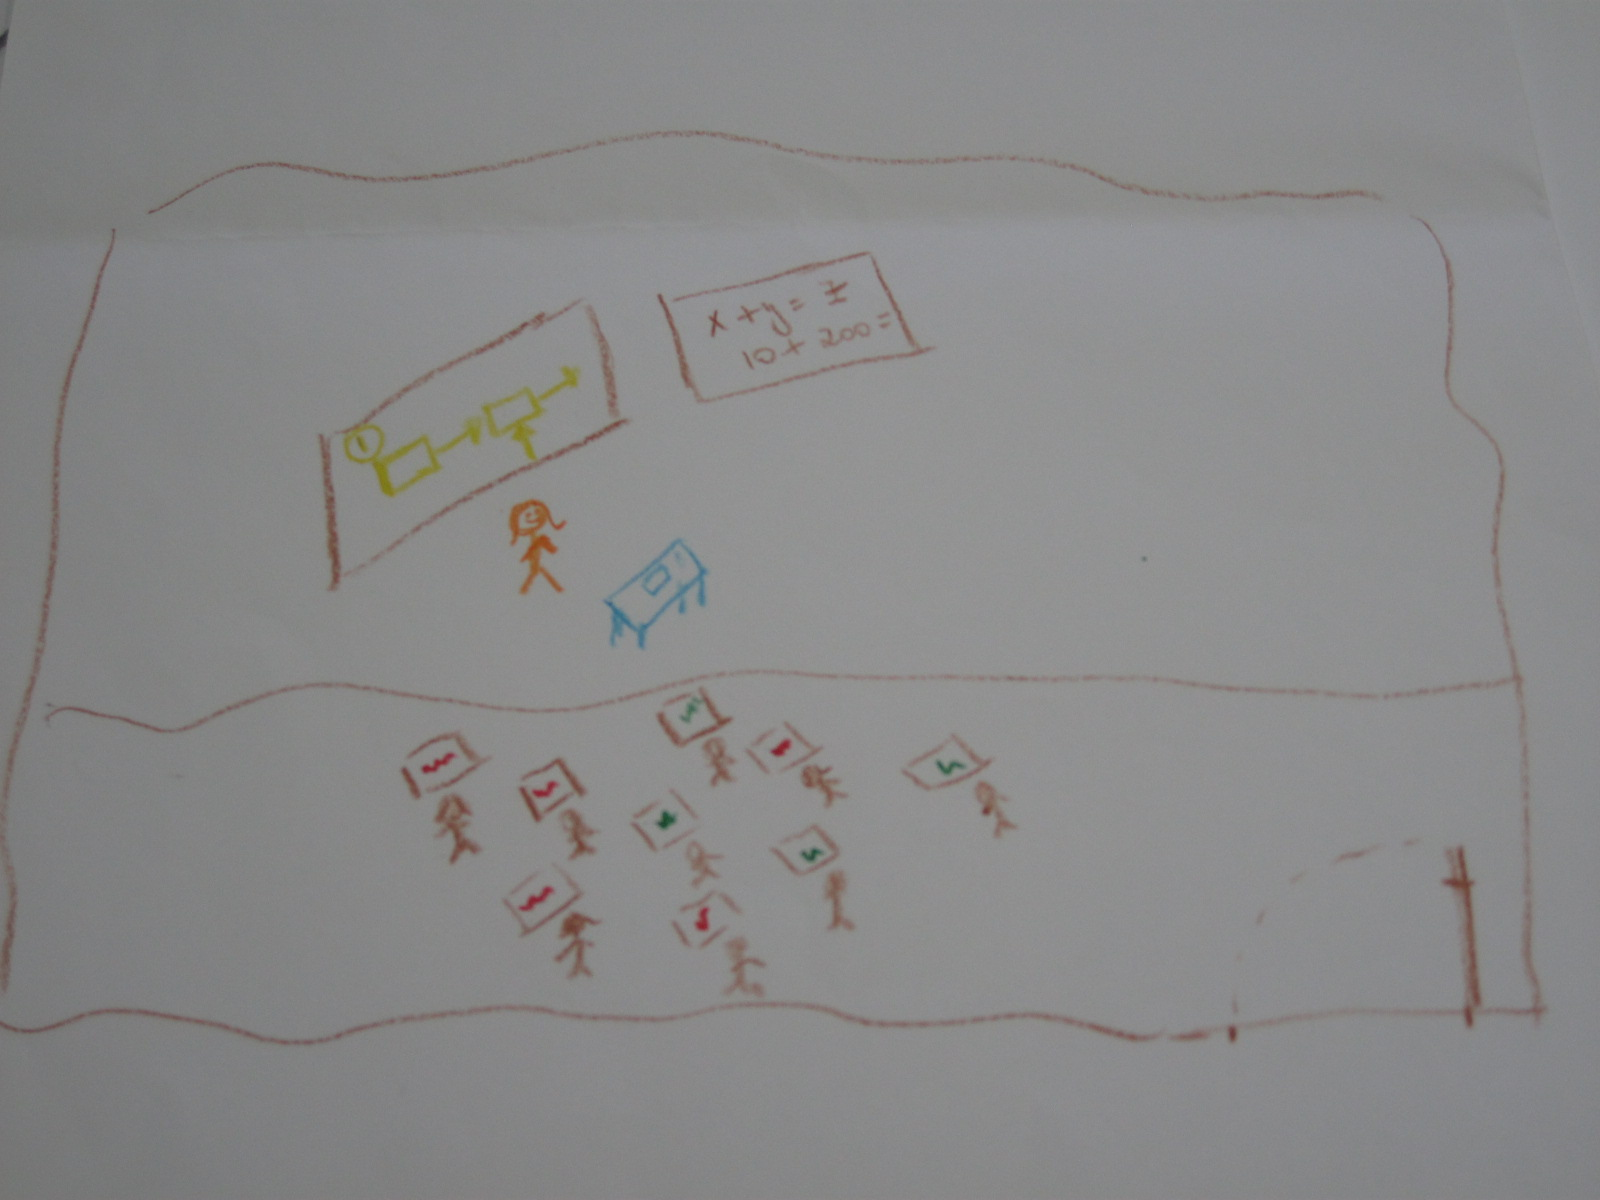 1
x + y = z
10 + 200 =